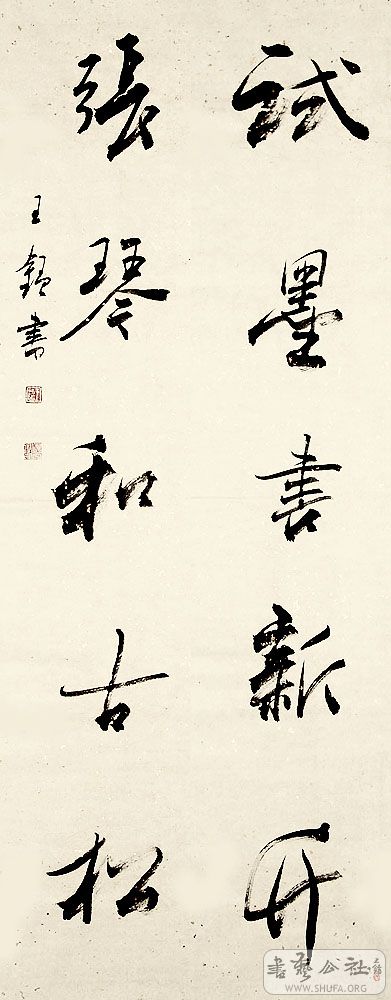 試墨書新竹
張琴和古松
王鏞書
書藝公社
WWW.SHUFA.ORG